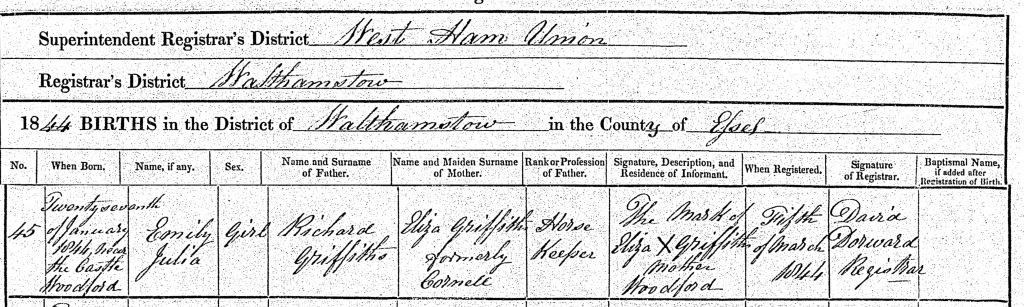 Superintendent Registrar's District West Ham Union
Registrar's District Walthamstow
1844 BIRTHS in the District of Walthamstow in the County of Essex
No.
When Born.
Name, if any.
Sex.
Name and Surname
of Father.
Name and Maiden Surname
of Mother.
Rank or Profession
of Father.
Signature, Description, and
Residence of Informant.
When Registered.
Signature
of Registrar.
Baptismal Name,
if added after
Registration of Birth.
45
Twenty seventh
of January
1844, near
the Castle
Woodford
Emily
Julia
Girl
Richard
Griffiths
Eliza Griffiths
formerly
Cornell
Horse
Keeper
The Mark of
Eliza X Griffiths
Mother
Woodford
Fifth
of March
1844
David
Dorward
Registrar